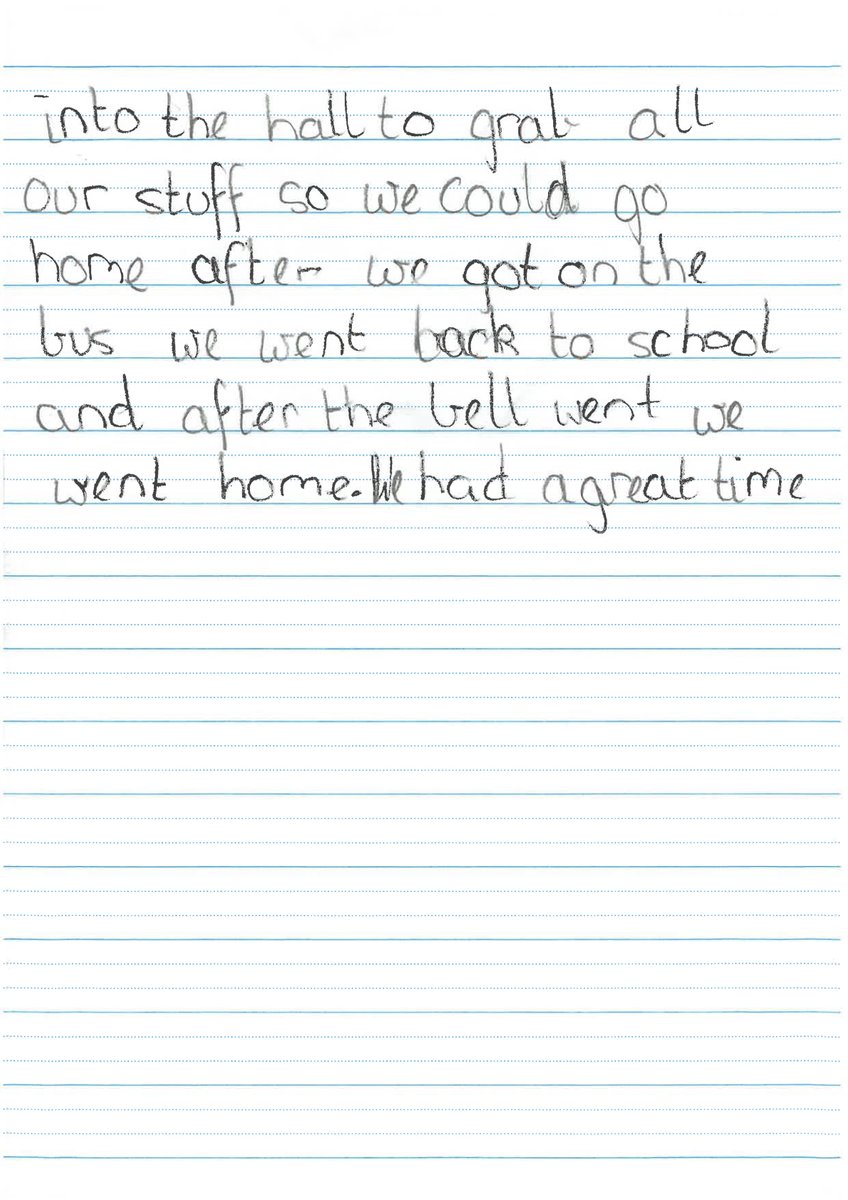 into the hall to grab all
our stuff so we could go
home after we got on the
bus we went back to school
and after the bell went we
went home. We had a great time